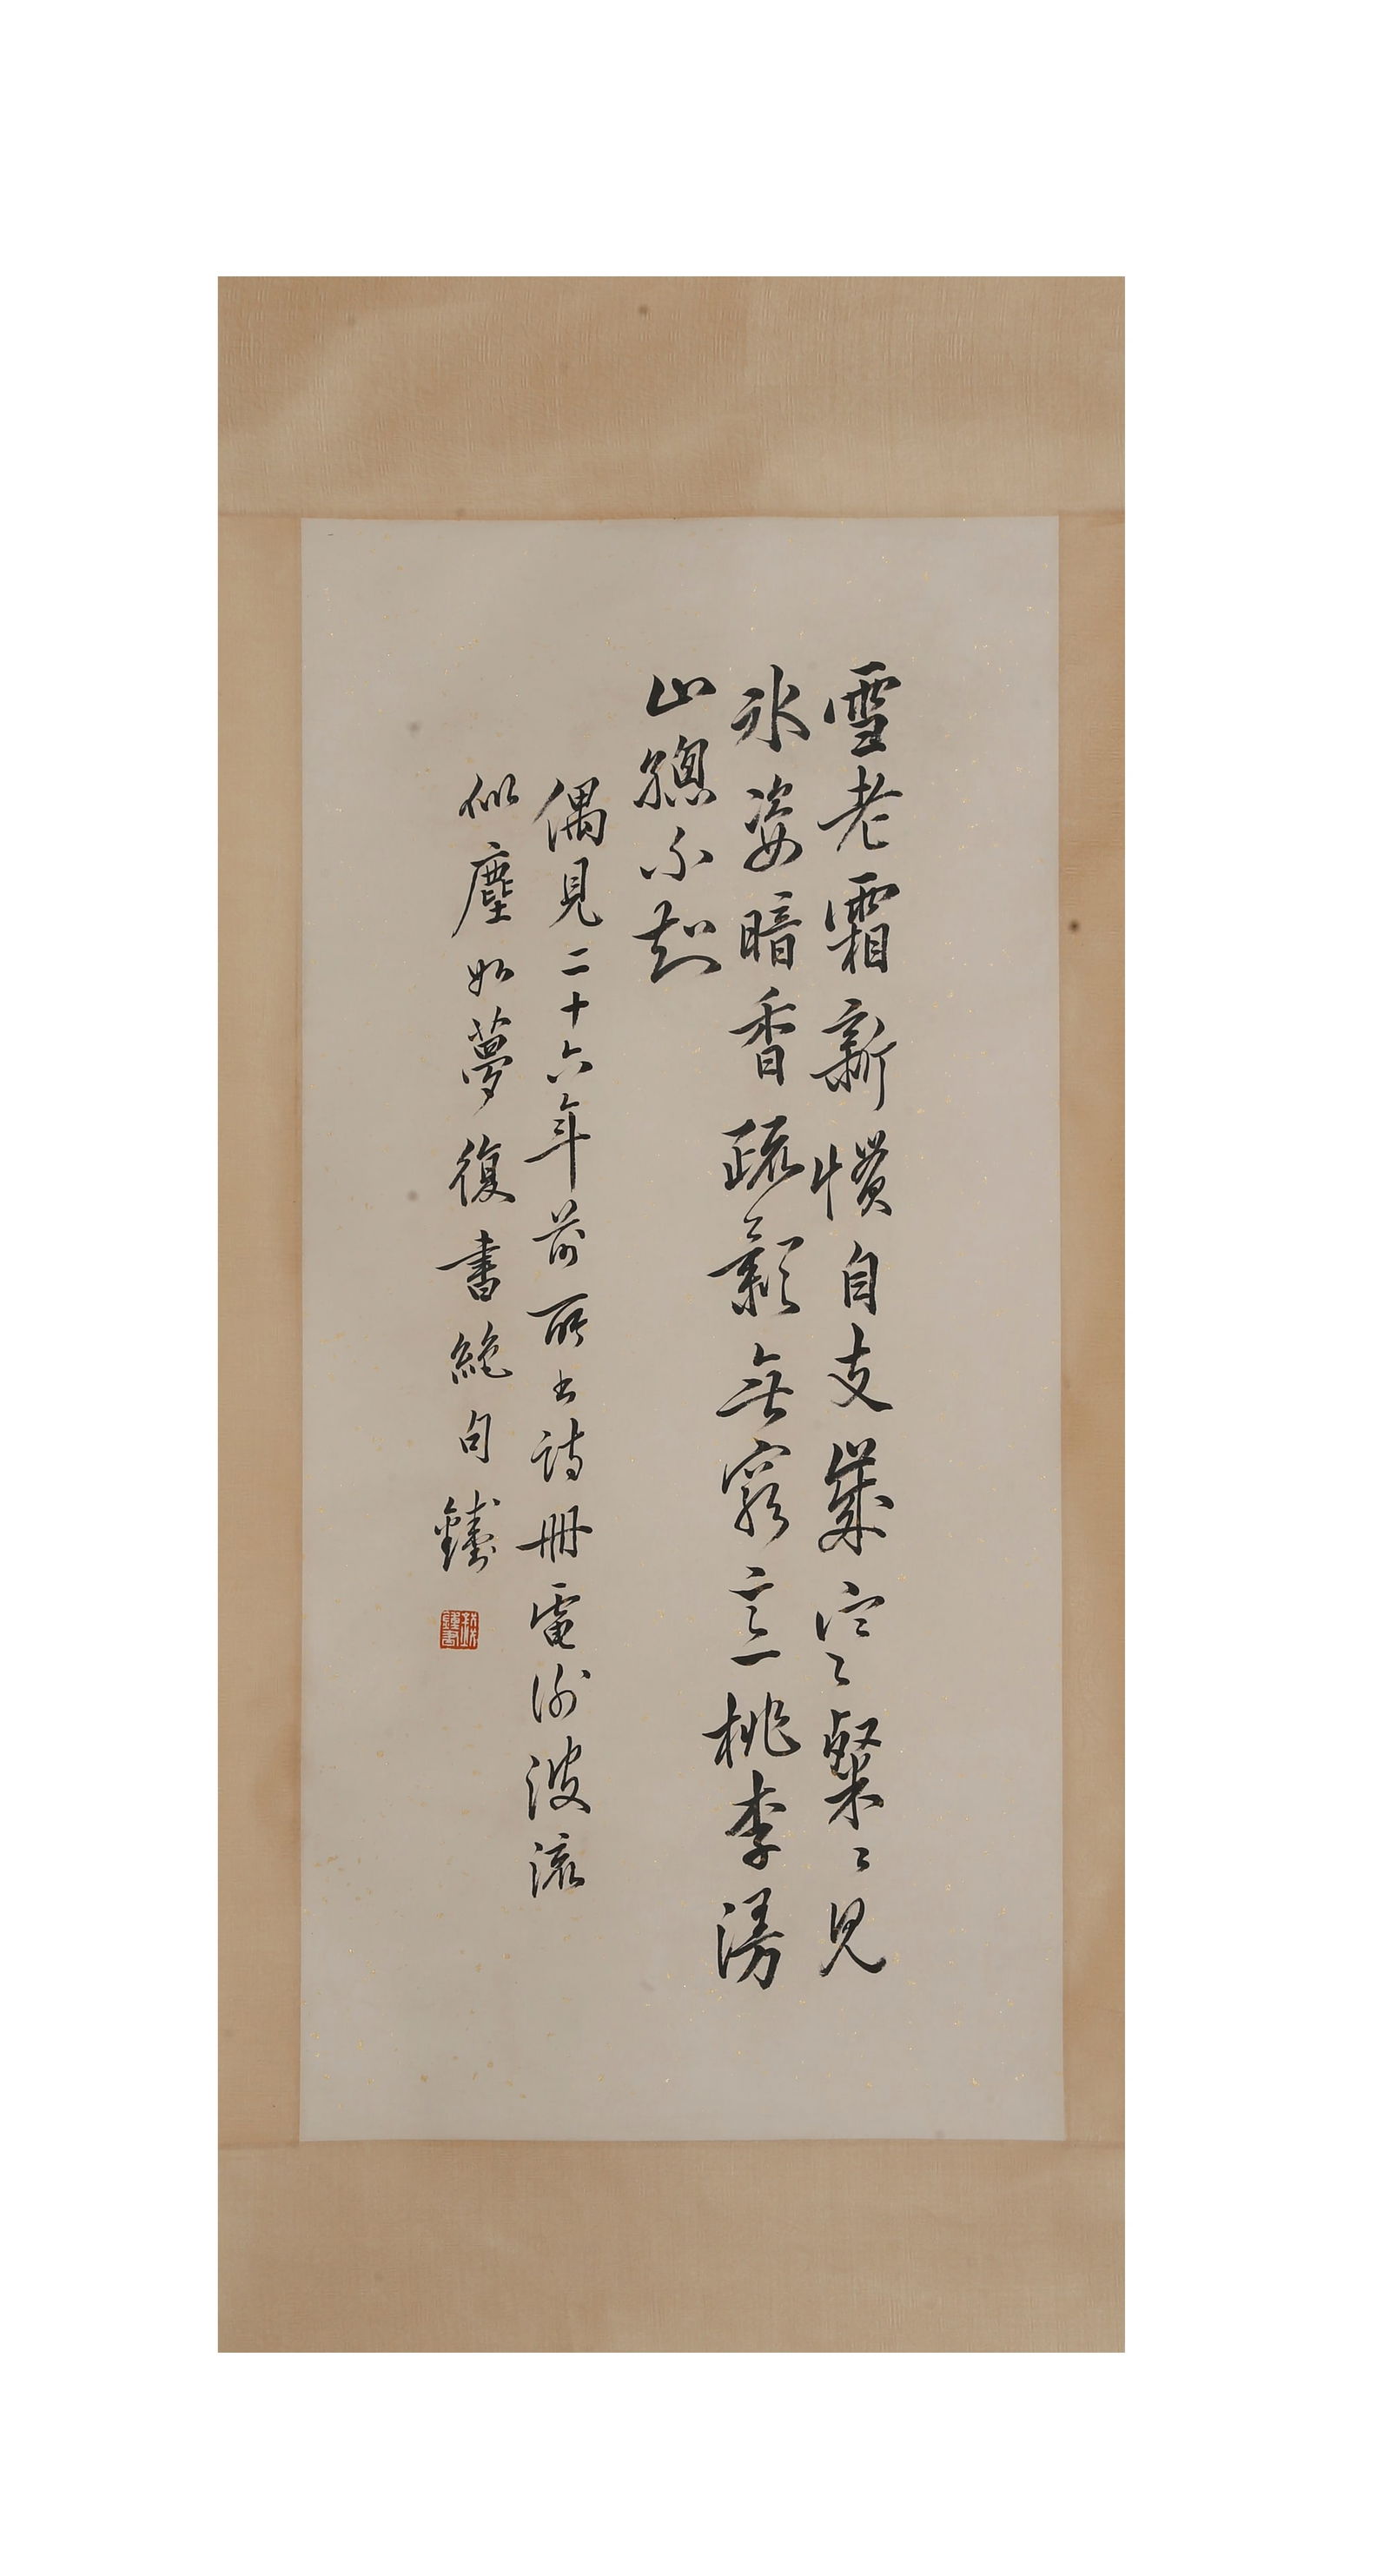 雪老霜新慣自支歲寒粲〻見
冰姿暗香疏影無窮意桃李漫
山總不知
偶見二十六年前所詩冊電謝波流
似塵如夢復書絕句
錢鍾書